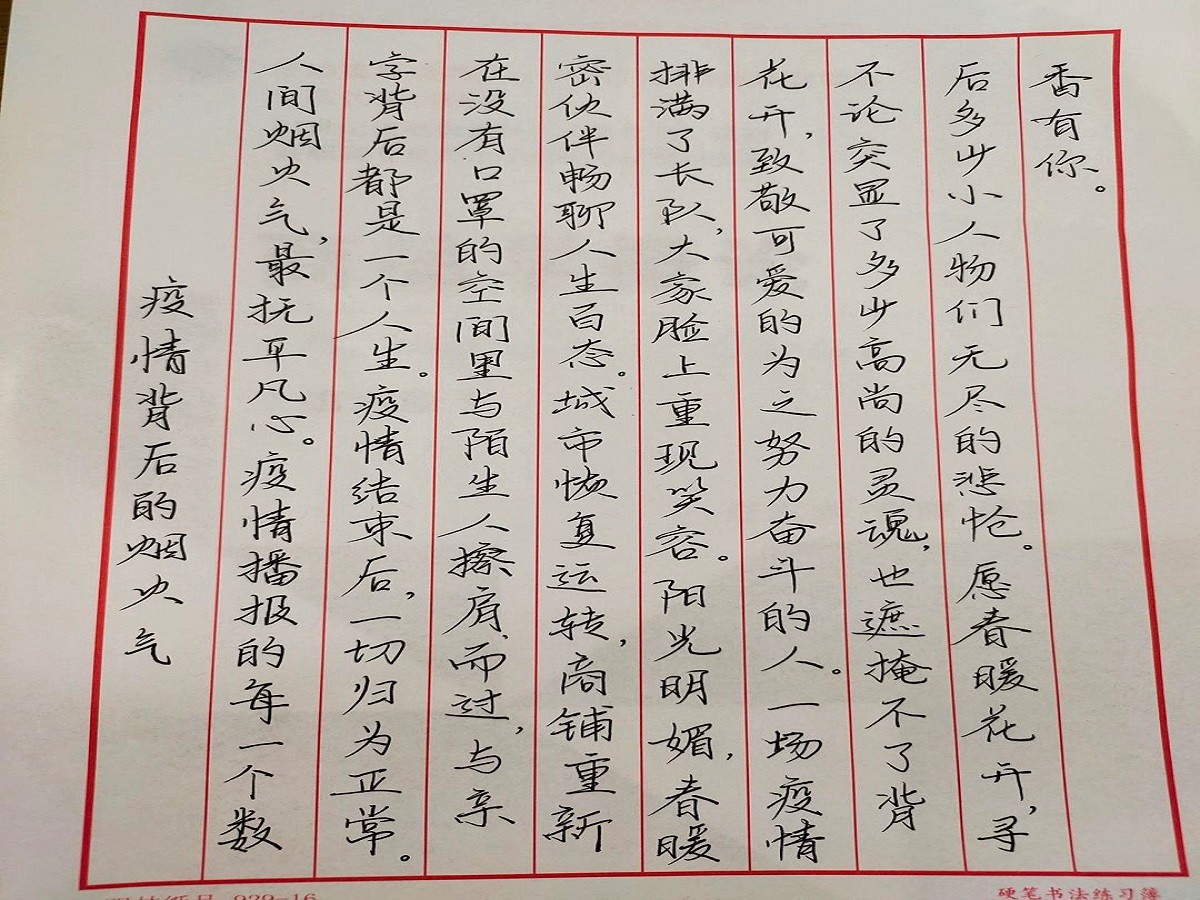 疫情背后的烟火气
人间烟火气，最抚平凡心。疫情播报的每一个数
字背后都是一个人生。疫情结束后，一切归为正常。
在没有口罩的空间里与陌生人擦肩而过，与亲
密伙伴畅聊人生百态。城市恢复运转，商铺重新
排满了长队，大家脸上重现笑容。阳光明媚，春暖
花开，致敬可爱的为之努力奋斗的人。一场疫情
不论突显了多少高尚的灵魂，也遮掩不了背
后多少小人物们无尽的悲怆。愿春暖花开，寻
香有你。
硬笔书法练习簿